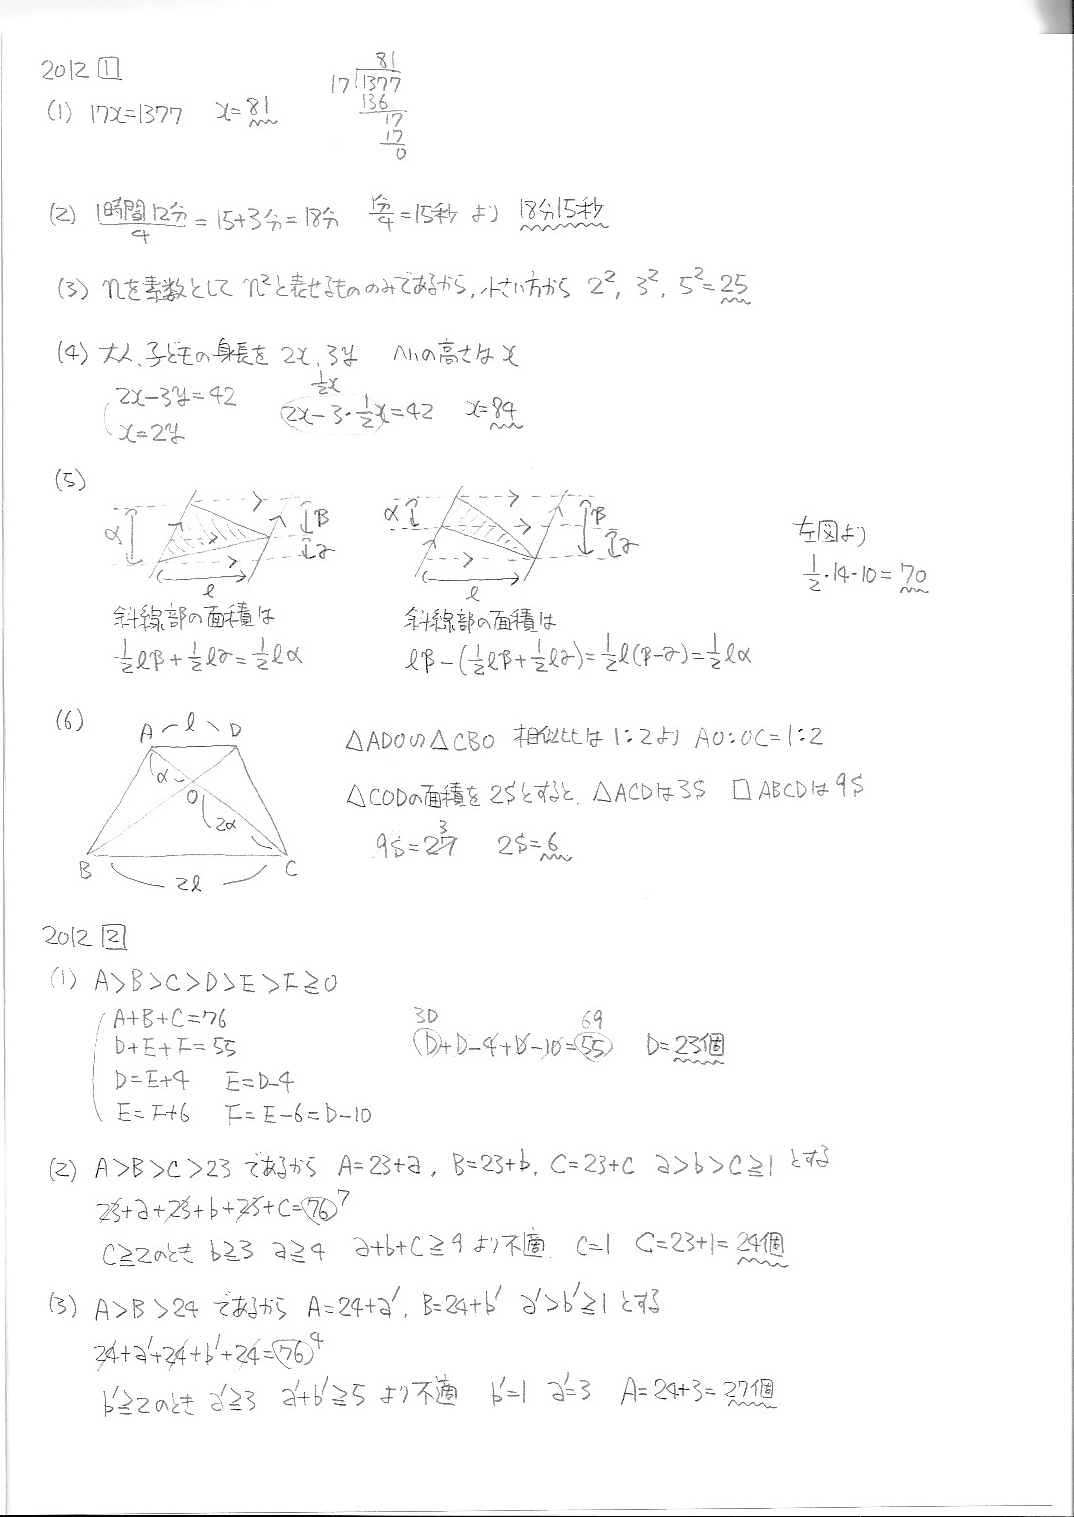 2012 1
81
17 1377
136
17
17
0
(1) 17x=1377 x=81
(2) 1時間12分/4 = 15+3分=18分 1分/4=15秒 より 18分15秒
(3) nを素数として n²と表せるもののみであるから、小さい方から 2², 3², 5²=25
(4) 大人、子どもの身長を 2x、3y ハリの高さは x
2x-3y=42
x=2y
1/2x
2x-3・1/2x=42 x=84
(5)
α β γ l
α β γ l
左図より
1/2・14・10=70
斜線部の面積は
1/2lβ+1/2lγ=1/2lα
斜線部の面積は
lβ-(1/2lβ+1/2lγ)=1/2l(β-γ)=1/2lα
(6)
A l D
α
O
2α
B 2l C
△ADO∽△CBO 相似比は 1:2より AO:OC=1:2
△CODの面積を 2Sとすると、△ACDは3S □ABCDは9S
9S=27 3 2S=6
2012 2
(1) A>B>C>D>E>F≧0
A+B+C=76
D+E+F=55
D=E+4 E=D-4
E=F+6 F=E-6=D-10
3D 69
D+D-4+D-10=55 D=23個
(2) A>B>C>23 であるから A=23+a, B=23+b, C=23+c a>b>c≧1 とする
23+a+23+b+23+c=76 7
c≧2のとき b≧3 a≧4 a+b+c≧9 より不適 c=1 C=23+1=24個
(3) A>B>24 であるから A=24+a', B=24+b' a'>b'≧1 とする
24+a'+24+b'+24=76 4
b'≧2のとき a'≧3 a'+b'≧5 より不適 b'=1 a'=3 A=24+3=27個